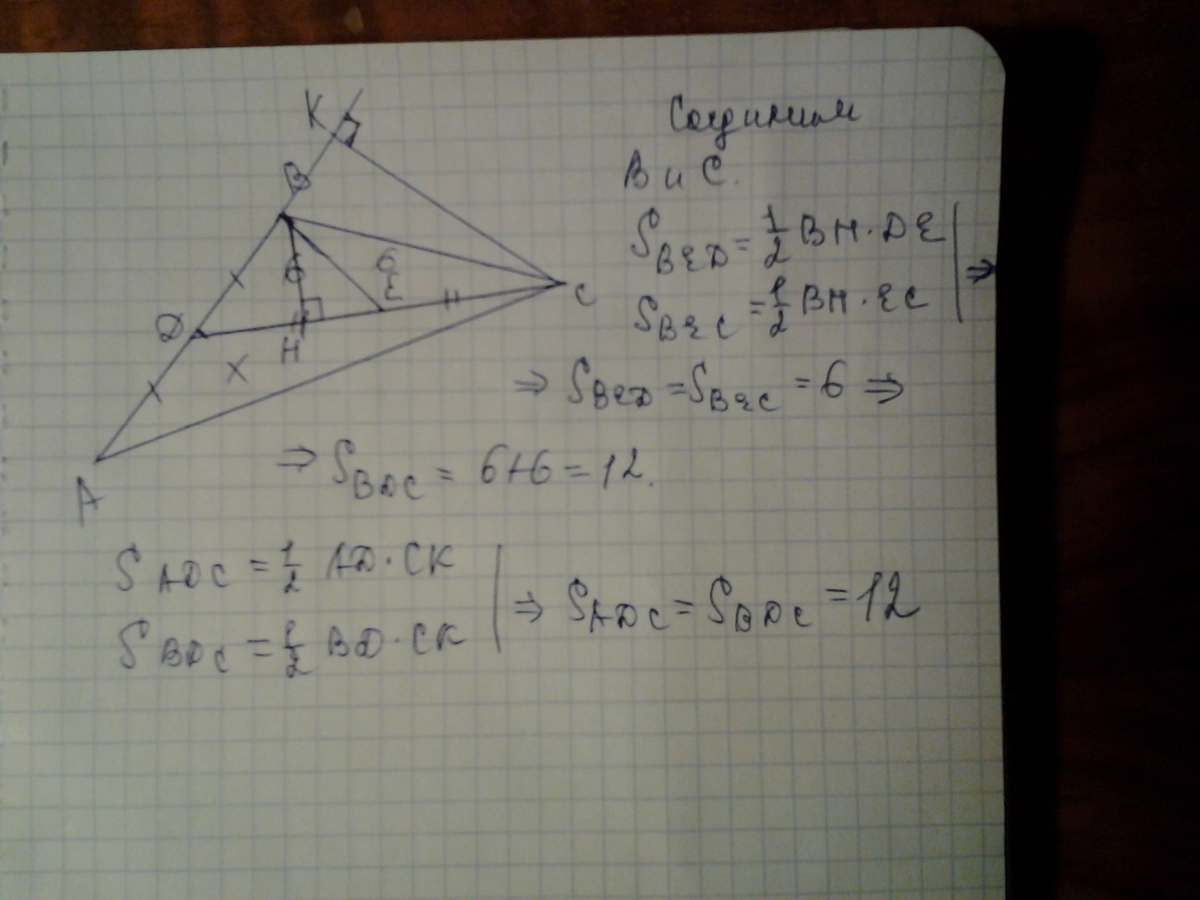 K
B
6
6
E
C
D
H
x
A
Соединим
B и C.
S_BED = 1/2 BH · DE
S_BEC = 1/2 BH · EC
⇒
⇒ S_BED = S_BEC = 6 ⇒
⇒ S_BDC = 6+6 = 12.
S_ADC = 1/2 AD · CK
S_BDC = 1/2 BD · CK
⇒ S_ADC = S_BDC = 12